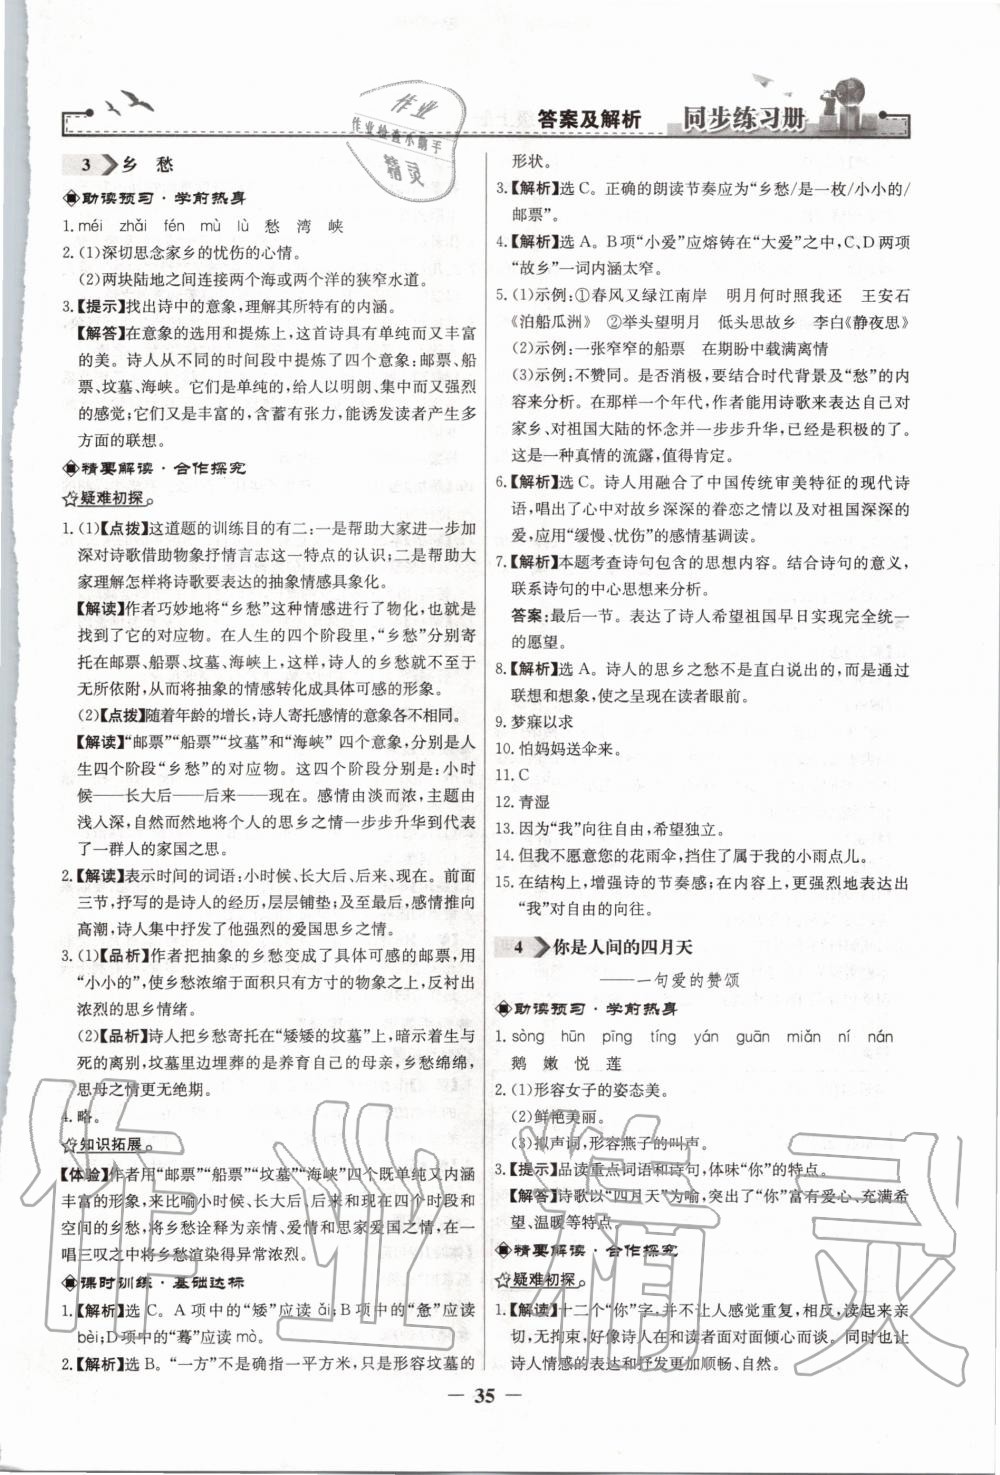 答案及解析 同步练习册
作业
作业检查小助手
精灵
3 乡 愁
助读预习·学前热身
1. méi zhǎi fén mù lù 愁 湾 峡
2. (1)深切思念家乡的忧伤的心情。
(2)两块陆地之间连接两个海或两个洋的狭窄水道。
3.【提示】找出诗中的意象,理解其所特有的内涵。
【解答】在意象的选用和提炼上,这首诗具有单纯而又丰富
的美。诗人从不同的时间段中提炼了四个意象:邮票、船
票、坟墓、海峡。它们是单纯的,给人以明朗、集中而又强烈
的感觉;它们又是丰富的,含蓄有张力,能诱发读者产生多
方面的联想。
精要解读·合作探究
疑难初探。
1. (1)【点拨】这道题的训练目的有二:一是帮助大家进一步加
深对诗歌借助物象抒情言志这一特点的认识;二是帮助大
家理解怎样将诗歌要表达的抽象情感具象化。
【解读】作者巧妙地将“乡愁”这种情感进行了物化,也就是
找到了它的对应物。在人生的四个阶段里,“乡愁”分别寄
托在邮票、船票、坟墓、海峡上,这样,诗人的乡愁就不至于
无所依附,从而将抽象的情感转化成具体可感的形象。
(2)【点拨】随着年龄的增长,诗人寄托情感的意象各不相同。
【解读】“邮票”“船票”“坟墓”和“海峡” 四个意象,分别是人
生四个阶段“乡愁”的对应物。这四个阶段分别是:小时
候——长大后——后来——现在。感情由淡而浓,主题由
浅入深,自然而然地将个人的思乡之情一步步升华到代表
了一群人的家国之思。
2.【解读】表示时间的词语:小时候、长大后、后来、现在。前面
三节,抒写的是诗人的经历,层层铺垫;到最后,感情推向
高潮,诗人集中抒发了他强烈的爱国思乡之情。
3. (1)【品析】作者把抽象的乡愁变成了具体可感的邮票,用
“小小的”,使乡愁浓缩于面积只有方寸的物象之上,反衬出
浓烈的思乡情绪。
(2)【品析】诗人把乡愁寄托在“矮矮的坟墓”上,暗示着生与
死的离别,坟墓里边埋葬的是养育自己的母亲,乡愁绵绵,
思母之情更无绝期。
4. 略。
知识拓展。
【体验】作者用“邮票”“船票”“坟墓”“海峡”四个既单纯又内涵
丰富的形象,来比喻小时候、长大后、后来和现在四个时段和
空间的乡愁,将乡愁诠释为亲情、爱情和思家爱国之情,在一
唱三叹之中将乡愁渲染得异常浓烈。
课时训练·基础达标
1.【解析】选 C。A 项中的“矮”应读 ǎi;B 项中的“惫”应读
bèi;D项中的“蓦”应读 mò。
2.【解析】选 B。“一方”不是确指一平方米,只是形容坟墓的
形状。
3.【解析】选 C。正确的朗读节奏应为“乡愁/是一枚/小小的/
邮票”。
4.【解析】选 A。B项“小爱”应熔铸在“大爱”之中,C、D 两项
“故乡”一词内涵太窄。
5. (1)示例:①春风又绿江南岸 明月何时照我还 王安石
《泊船瓜洲》 ②举头望明月 低头思故乡 李白《静夜思》
(2)示例:一张窄窄的船票 在期盼中载满离情
(3)示例:不赞同。是否消极,要结合时代背景及“愁”的内
容来分析。在那样一个年代,作者能用诗歌来表达自己对
家乡、对祖国大陆的怀念并一步步升华,已经是积极的了。
这是一种真情的流露,值得肯定。
6.【解析】选 C。诗人用融合了中国传统审美特征的现代诗
语,唱出了心中对故乡深深的眷恋之情以及对祖国深深的
爱,应用“缓慢、忧伤”的感情基调读。
7.【解析】本题考查诗句包含的思想内容。结合诗句的意义,
联系诗句的中心思想来分析。
答案:最后一节。表达了诗人希望祖国早日实现完全统一
的愿望。
8.【解析】选 A。诗人的思乡之愁不是直白说出的,而是通过
联想和想象,使之呈现在读者眼前。
9. 梦寐以求
10. 怕妈妈送伞来。
11. C
12. 青湿
13. 因为“我”向往自由,希望独立。
14. 但我不愿意您的花雨伞,挡住了属于我的小雨点儿。
15. 在结构上,增强诗的节奏感;在内容上,更强烈地表达出
“我”对自由的向往。
4 你是人间的四月天
——一句爱的赞颂
助读预习·学前热身
1. sòng hūn pīng tíng yán guān miǎn ní nán
鹅 嫩 悦 莲
2. (1)形容女子的姿态美。
(2)鲜艳美丽。
(3)拟声词,形容燕子的叫声。
3.【提示】品读重点词语和诗句,体味“你”的特点。
【解答】诗歌以“四月天”为喻,突出了“你”富有爱心、充满希
望、温暖等特点。
精要解读·合作探究
疑难初探。
1.【解读】十二个“你”字,并不让人感觉重复,相反,读起来亲
切,无拘束,好像诗人在和友人面对面倾心而谈。同时也让
诗人情感的表达和抒发更加顺畅、自然。
— 35 —
作业精灵